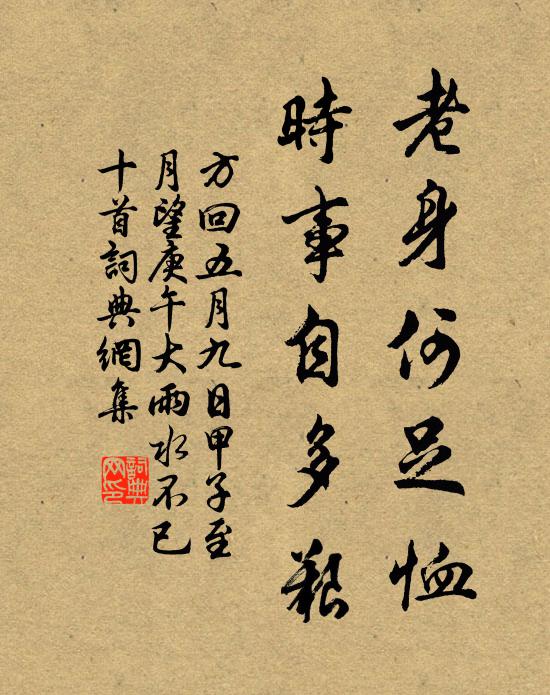 老身何足恤
時事自多艱
方回五月九日甲子至
月望庚午大雨水不已
十首詞典網集
詞典網印